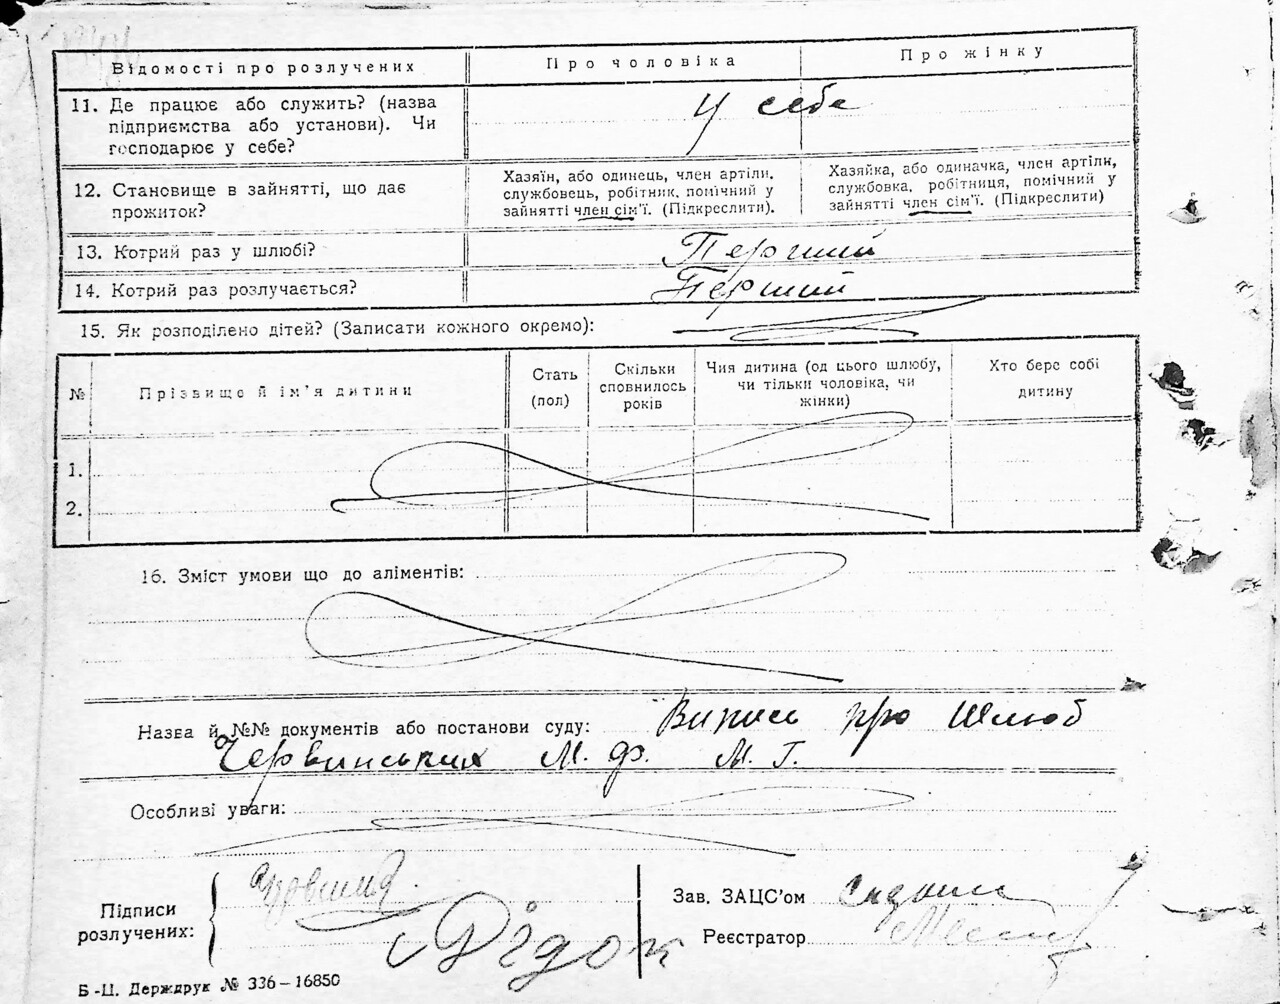 Відомості про розлучених
Про чоловіка
Про жінку
11. Де працює або служить? (назва
підприємства або установи). Чи
господарює у себе?
У себе
12. Становище в зайнятті, що дає
прожиток?
Хазяїн, або одинець, член артіли,
службовець, робітник, помічний у
зайнятті член сім'ї. (Підкреслити).
Хазяйка, або одиначка, член артіли,
службовка, робітниця, помічний у
зайнятті член сім'ї. (Підкреслити)
13. Котрий раз у шлюбі?
Перший
14. Котрий раз розлучається?
Перший
15. Як розподілено дітей? (Записати кожного окремо):
№
Прізвище й ім'я дитини
Стать
(пол)
Скільки
сповнилось
років
Чия дитина (од цього шлюбу,
чи тільки чоловіка, чи
жінки)
Хто бере собі
дитину
1.
2.
16. Зміст умови що до аліментів:
Назва й №№ документів або постанови суду: Випись про шлюб
Червинських М. Ф. М. Г.
Особливі уваги:
Підписи
розлучених:
Дідок
Зав. ЗАЦС'ом
Реєстратор
Б-Ц. Держдрук № 336-16850